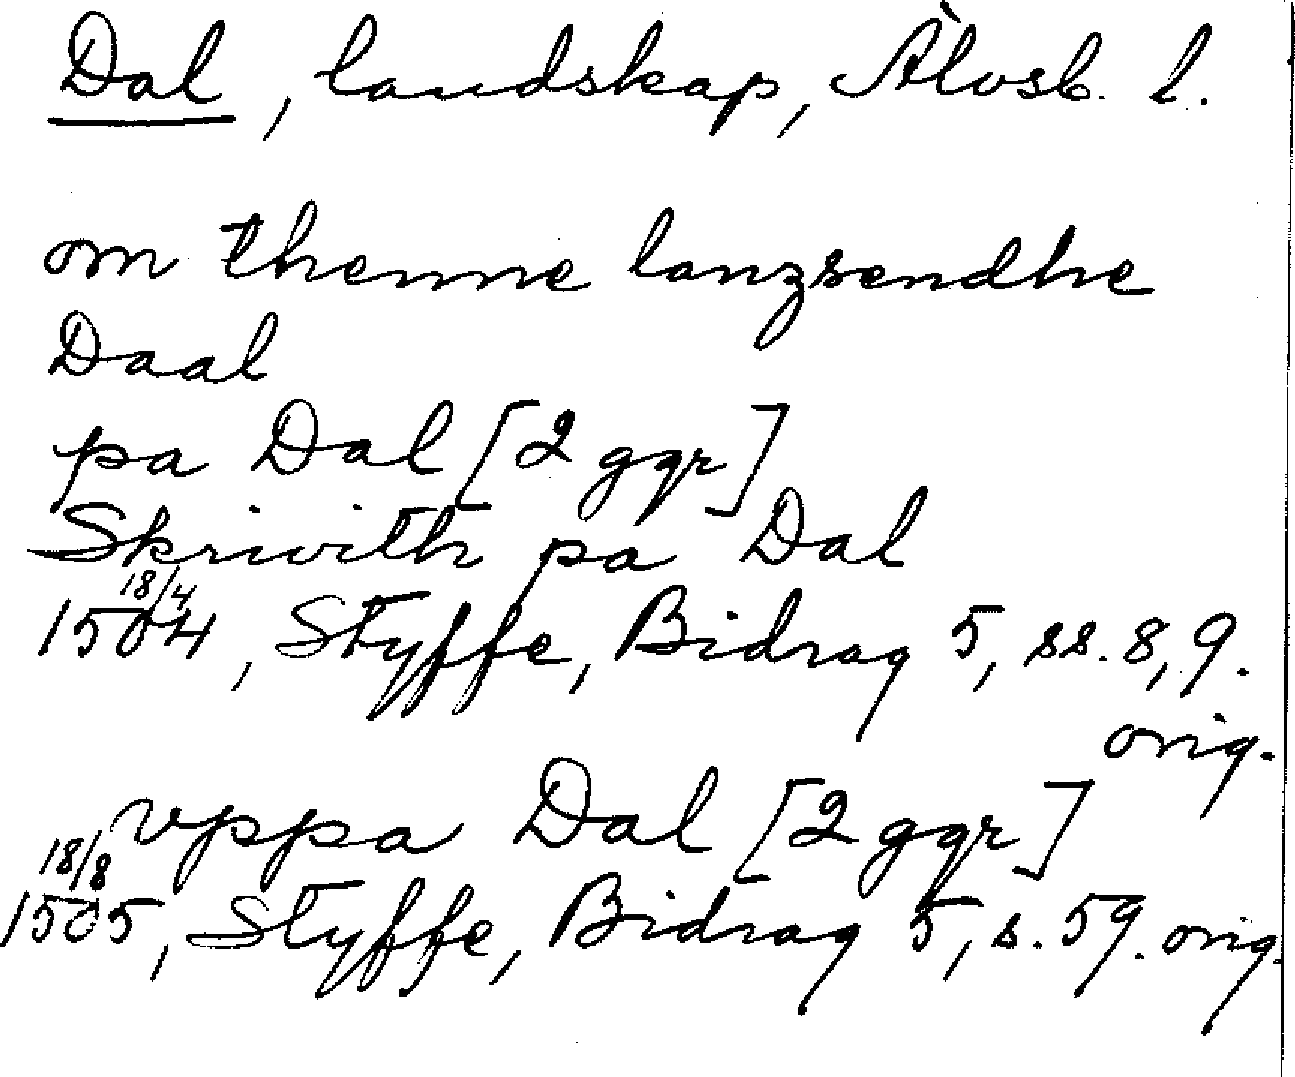 Dal, landskap, Älvsb. l.
om thenne lanzsendhe
Daal
pa Dal [2 ggr]
Skriwith pa Dal
18/4
1504, Styffe, Bidrag 5, ss. 8, 9.
orig.
vppa Dal [2 ggr]
18/8
1505, Styffe, Bidrag 5, s. 59. orig.